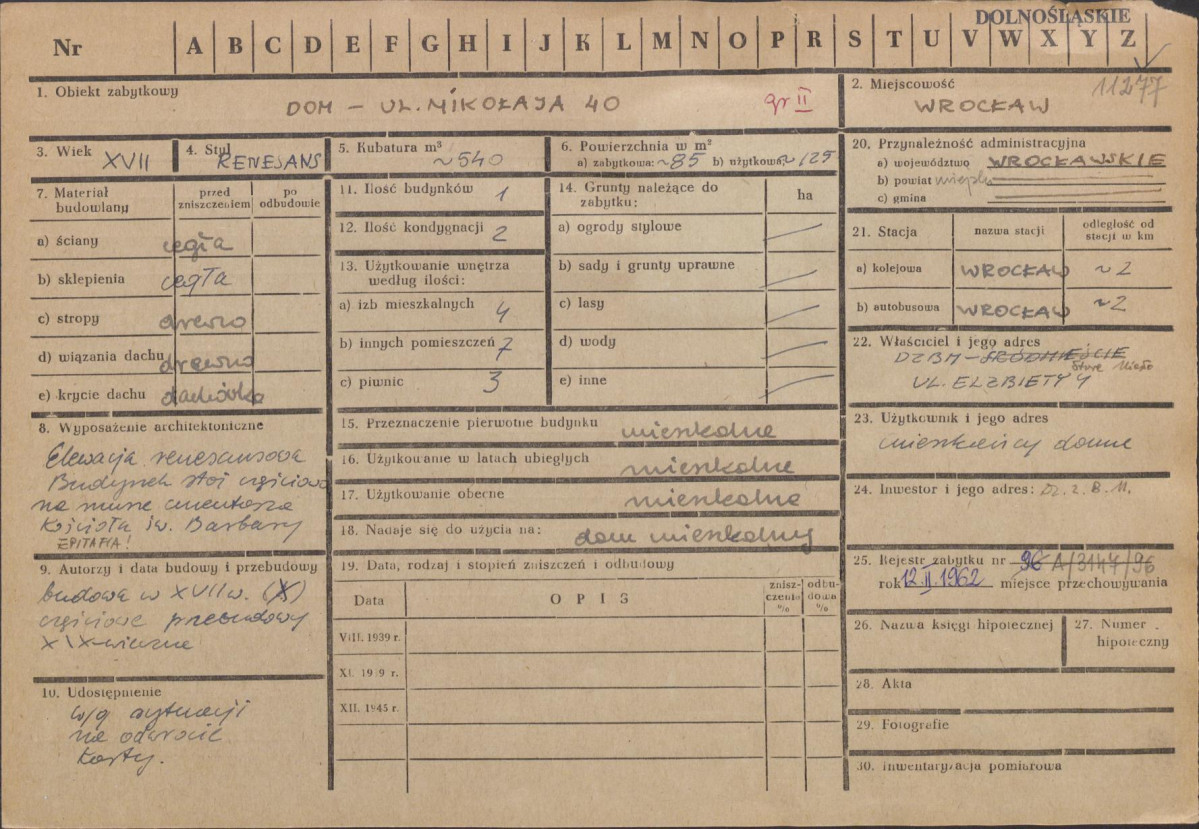 DOLNOŚLĄSKIE
Nr A B C D E F G H I J K L M N O P R S T U V W X Y Z
11277
1. Obiekt zabytkowy
DOM – UL. MIKOŁAJA 40 gr II
2. Miejscowość
WROCŁAW
3. Wiek XVII
4. Styl RENESANS
5. Kubatura m³ ~540
6. Powierzchnia w m²
a) zabytkowa: ~85 b) użytkowa: ~125
20. Przynależność administracyjna
a) województwo WROCŁAWSKIE
b) powiat
c) gmina
7. Materiał budowlany
przed zniszczeniem
po odbudowie
a) ściany cegła
b) sklepienia cegła
c) stropy drewno
d) wiązania dachu drewno
e) krycie dachu dachówka
11. Ilość budynków 1
12. Ilość kondygnacji 2
13. Użytkowanie wnętrza
według ilości:
a) izb mieszkalnych 4
b) innych pomieszczeń 7
c) piwnic 3
14. Grunty należące do
zabytku:
ha
a) ogrody stylowe
b) sady i grunty uprawne
c) lasy
d) wody
e) inne
21. Stacja
nazwa stacji
odległość od
stacji w km
a) kolejowa WROCŁAW ~2
b) autobusowa WROCŁAW ~2
22. Właściciel i jego adres
DZBM – ŚRÓDMIEŚCIE
Stare Miasto
UL. ELZBIETY 4
8. Wyposażenie architektoniczne
Elewacja renesansowa
Budynek stoi częściowo
na murze cmentarza
Kościoła św. Barbary
EPITAFIA!
15. Przeznaczenie pierwotne budynku mieszkalne
16. Użytkowanie w latach ubiegłych mieszkalne
17. Użytkowanie obecne mieszkalne
18. Nadaje się do użycia na: dom mieszkalny
23. Użytkownik i jego adres
mieszkańcy domu
24. Inwestor i jego adres: Dz. Z. B. M.
9. Autorzy i data budowy i przebudowy
budowa w XVII w. (X)
częściowe przebudowy
XIX-wieczne
19. Data, rodzaj i stopień zniszczeń i odbudowy
Data
OPIS
znisz-
czenia
%
odbu-
dowa
%
VIII. 1939 r.
XI. 1939 r.
XII. 1945 r.
25. Rejestr zabytku nr 96 A/3147/96
rok 12 II 1962 miejsce przechowywania
26. Nazwa księgi hipotecznej
27. Numer
hipoteczny
10. Udostępnienie
w/g sytuacji
na odwrocie
karty.
28. Akta
29. Fotografie
30. Inwentaryzacja pomiarowa